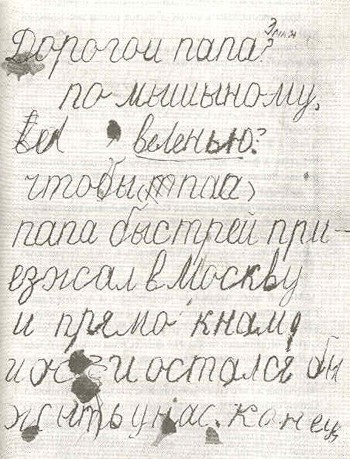 Зина
Дорогои папа?
по мышыному,
веленью?
чтобы, папа,
папа быстрей при-
езжал в Москву
и прямо кнам,
и остался бы
жыть у нас. конец